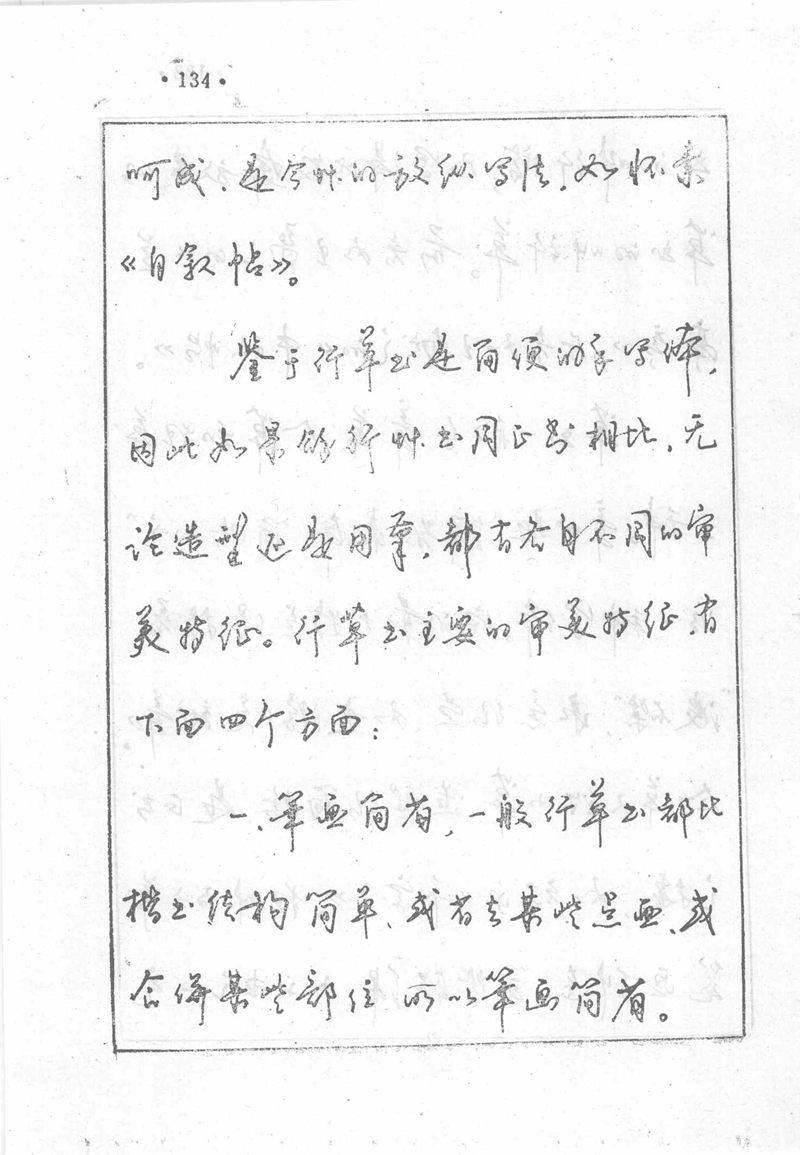 ·134·
呵成，是今草的放纵写法，如怀素
《自叙帖》。
鉴于行草书是简便的手写体，
因此如果纵行草书同正书相比，无
论造型还是用笔，都有各自不同的审
美特征。行草书主要的审美特征，有
下面四个方面：
一、笔画简省，一般行草书都比
楷书结构简单，或省去某些点画，或
合併某些部位，所以笔画简省。